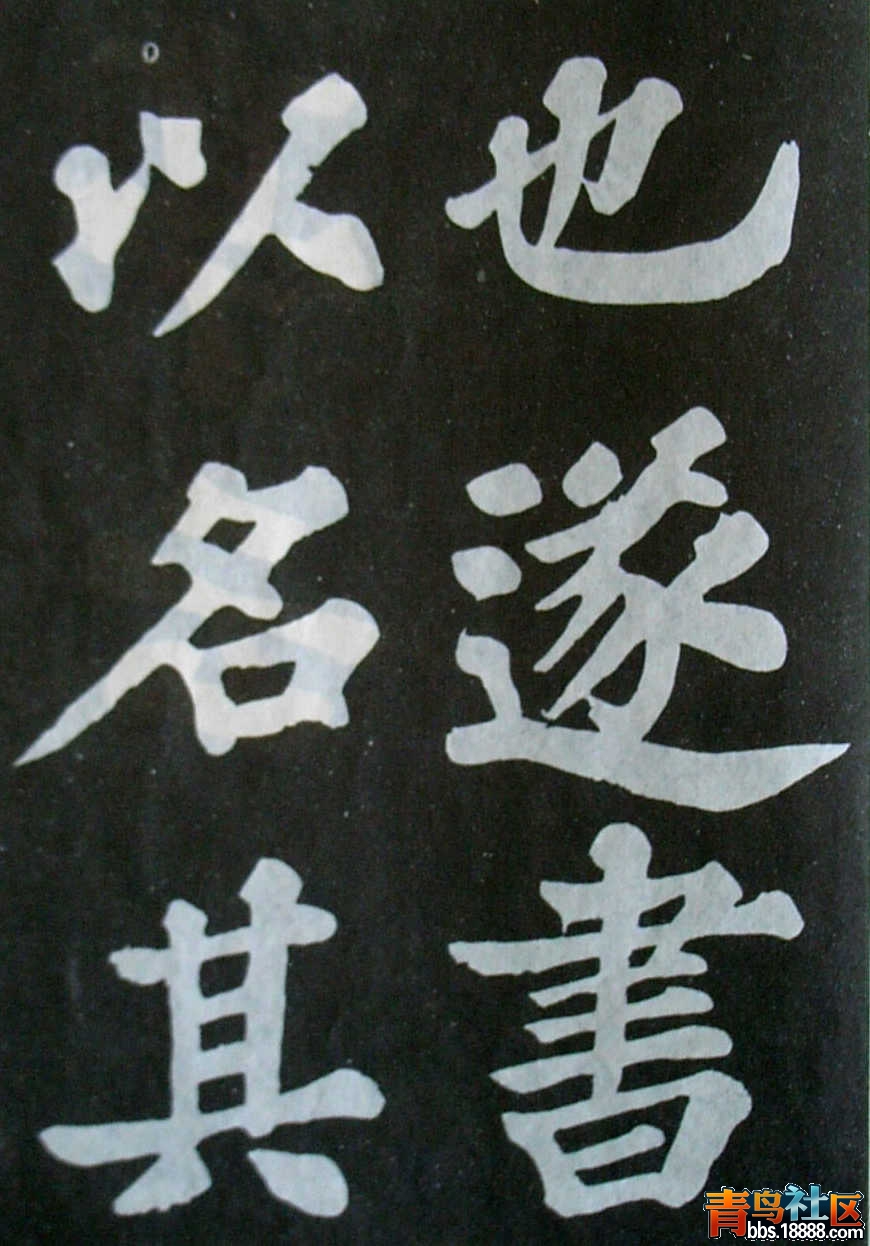 也遂書
以名其
青鸟社区
bbs.18888.com